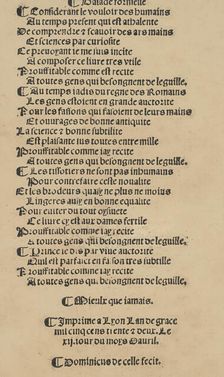 ¶ Balade formelle
¶ Considerant le vouloir des humains
Au temps present qui est a thalente
De comprendre z scauoir des ars mains
Et sciences par curiosite
Ce preuoyant ie me suis incite
A composer ce liure tres vtile
Prouffitable comme est recite
A toutes gens qui besongnent de leguille.
¶ Au temps iadis du regne des Romains
Les gens estoient en grande auctorite
Pour les fasions qui faisoient de leurs mains
Et ouurages de bonne antiquite
La science z bonne subtilite
Est plaisante sus toutes entre mille
Prouffitable comme iay recite
A toutes gens qui besongnent de leguille.
¶ Les tissotiers ne sont pas inhumains
Pour contrefaire ceste noualite
Et les brodeurs auiz ne plus ne moins
Lingeres auiz en bonne equalite
Pour euiter du tout oysiuete
Ce liure cy est aux dames fertile
Prouffitable comme iay recite
A toutes gens qui besongnent de leguille.
¶ Prince ie dis par viue auctorite
Quil est parfaict en sa son tres subtille
Prouffitable comme iay recite
A toutes gens qui besongnent de leguille.
¶ Mieulx que iamais.
¶ Imprime a Lyon Lan de grace
mil cinq cens trente z deux. Le
xij. iour du moys Dauril.
¶ Dominicus de celle fecit.